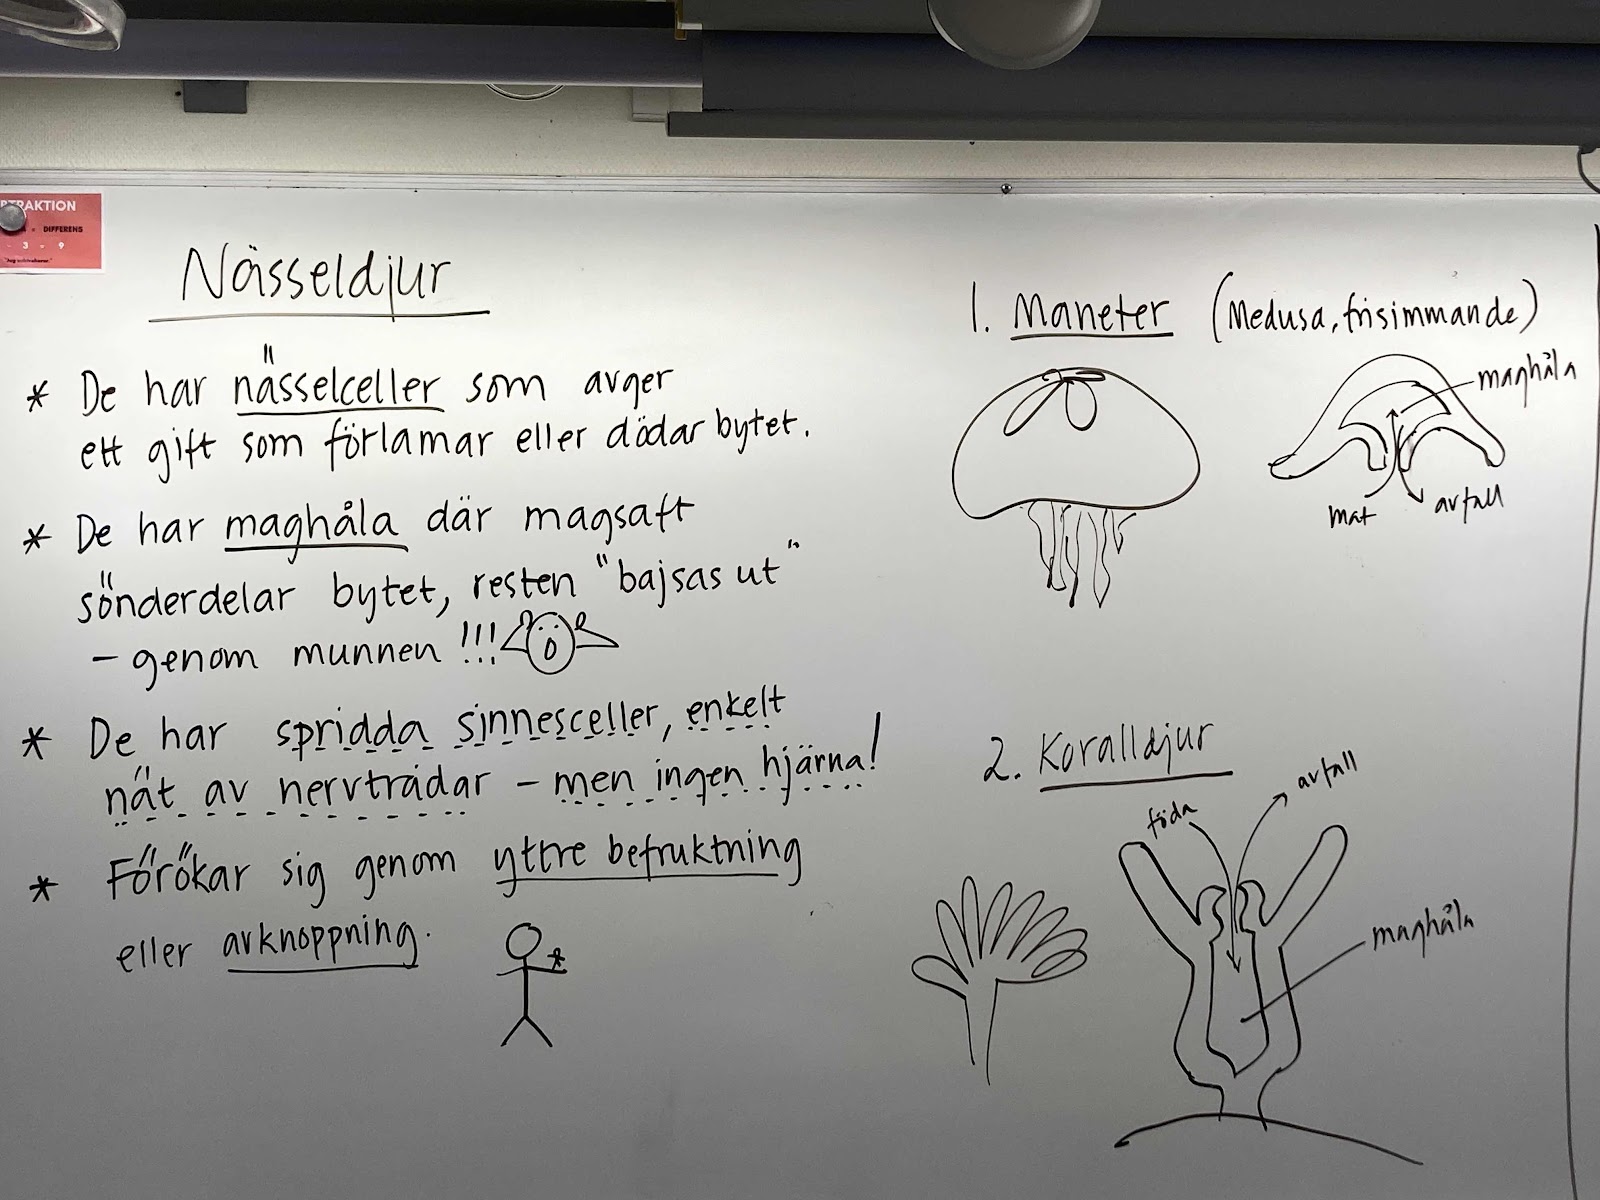 TRAKTION
= DIFFERENS
- 3 = 9
Nässeldjur
* De har nässelceller som avger
ett gift som förlamar eller dödar bytet.
* De har maghåla där magsaft
sönderdelar bytet, resten "bajsas ut"
- genom munnen !!!
* De har spridda sinnesceller, enkelt
nät av nervtrådar - men ingen hjärna!
* Förökar sig genom yttre befruktning
eller avknoppning.
1. Maneter (Medusa, frisimmande)
maghåla
mat
avfall
2. Koralldjur
föda
avfall
maghåla